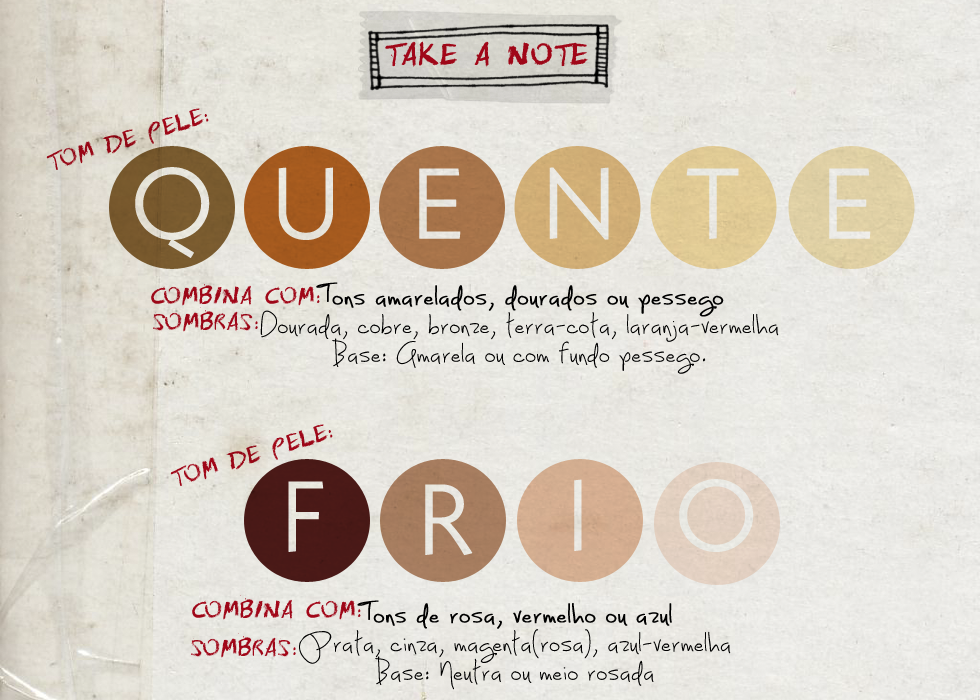 TAKE A NOTE
TOM DE PELE:
QUENTE
COMBINA COM: Tons amarelados, dourados ou pessego
SOMBRAS: Dourada, cobre, bronze, terra-cota, laranja-vermelha
Base: Amarela ou com fundo pessego.
TOM DE PELE:
FRIO
COMBINA COM: Tons de rosa, vermelho ou azul
SOMBRAS: Prata, cinza, magenta(rosa), azul-vermelha
Base: Neutra ou meio rosada